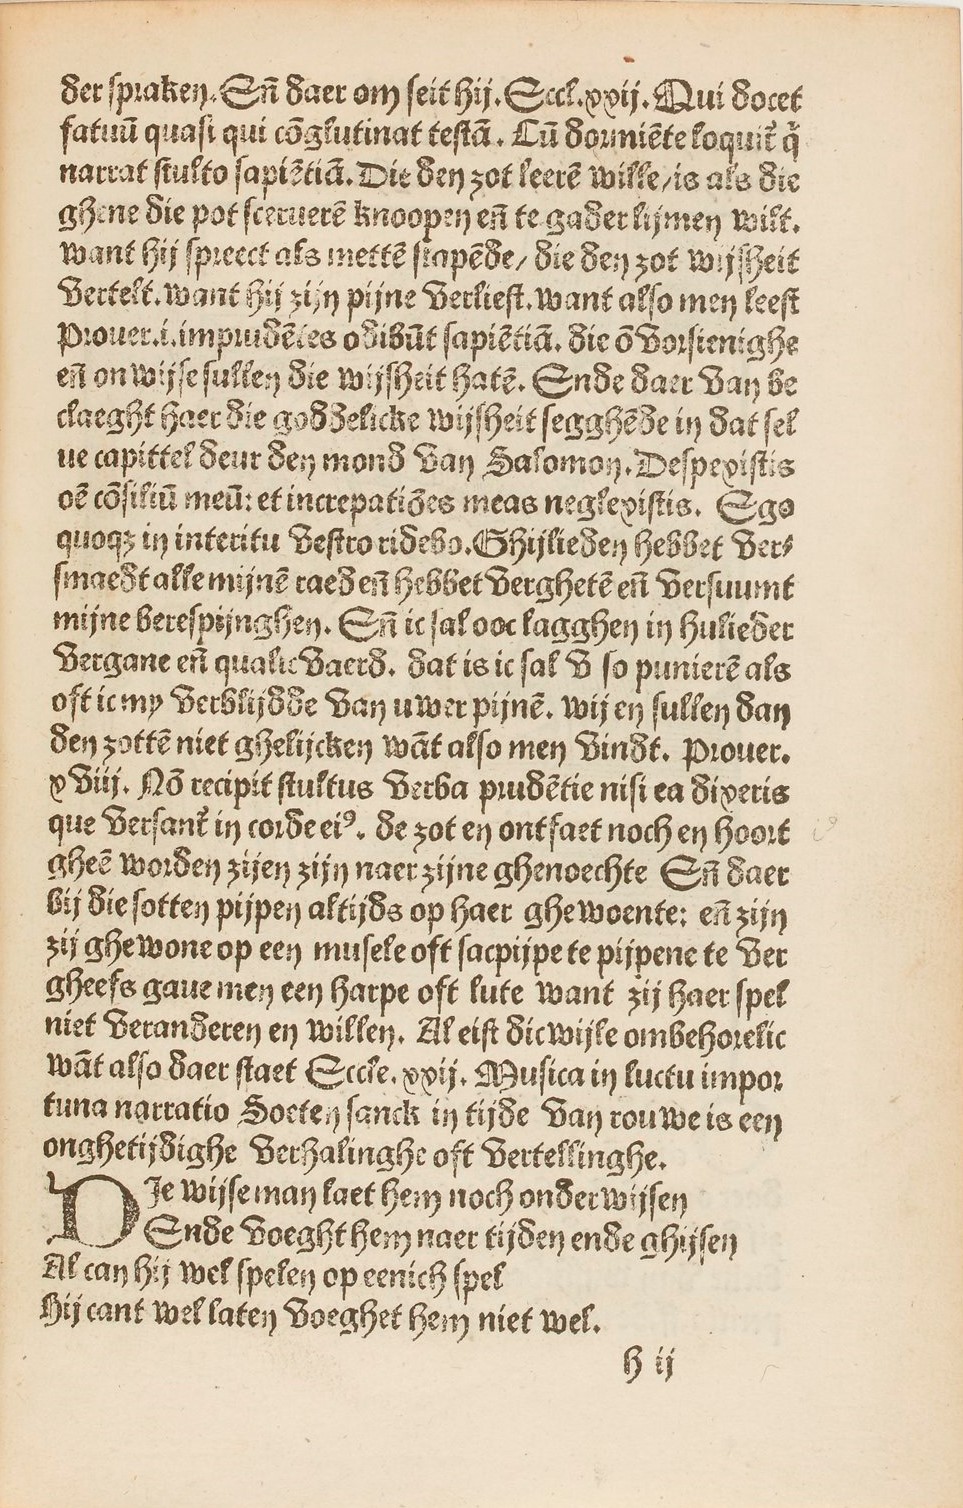 der spraken. Eñ daer om seit hij. Eccl. xxij. Qui docet
fatuū quasi qui cōglutinat testā. Cū dormiēte loquit᷑ q̇
narrat stulto sapiētiā. Die den zot leerē wille/is als die
ghene die pot scerverē knoopen eñ te gader lijmen wilt.
want hij spreect als mettē slapēde/ die den zot wijsheit
vertelt. want hij zijn pijne verliest. want also men leest
Prouer. i. imprudētes odibūt sapiētiā. die ōvorsienighe
eñ onwijse sullen die wijsheit hatē. Ende daer van be
claeght haer die goddelicke wijsheit segghēde in dat sel
ue capittel deur den mond van Salomon. Despexistis
oē cōsiliū meū: et increpatiōes meas neglexistis. Ego
quoqꝫ in interitu vestro ridebo. Ghijlieden hebbet ver⸗
smaedt alle mijnē raed eñ hebbet verghetē eñ versuumt
mijne berespijnghen. Eñ ic sal ooc lagghen in hulieder
vergane eñ qualicvaerd. dat is ic sal v so punierē als
oft ic my verblijdde van uwer pijnē. wij en sullen dan
den zottē niet ghelijcken wāt also men vindt. Prouer.
xviij. Nō recipit stultus verba prudētie nisi ea dixeris
que versant᷑ in corde eiꝰ. de zot en ontfaet noch en hoort
gheē worden zijen zijn naer zijne ghenoechte Eñ daer
bij die sotten pijpen altijds op haer ghewoente: eñ zijn
zij ghewone op een musele oft sacpijpe te pijpene te ver
gheefs gaue men een harpe oft lute want zij haer spel
niet veranderen en willen. Al eist dicwijle ombehorelic
wāt also daer staet Eccle. xxij. Musica in luctu impor
tuna narratio Soeten sanck in tijde van rouwe is een
onghetijdighe verhalinghe oft vertellinghe.
DIe wijse man laet hem noch onderwijsen
Ende voeght hem naer tijden ende ghijsen
Al can hij wel spelen op eenich spel
Hij cant wel laten voeghet hem niet wel.
h ij